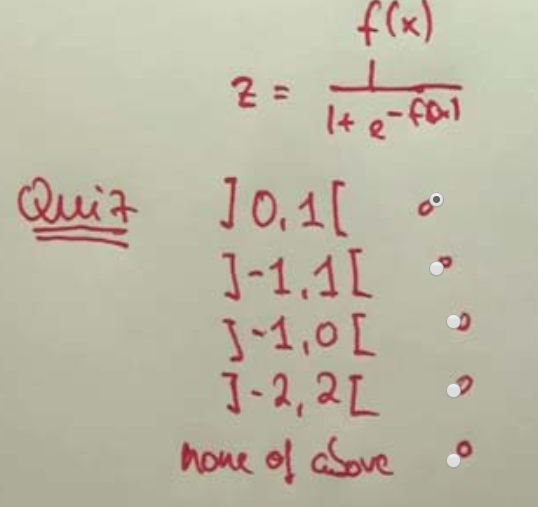 f(x)
z = 1 / 1 + e^-f(x)
Quiz
]0,1[
]-1,1[
]-1,0[
]-2,2[
none of above